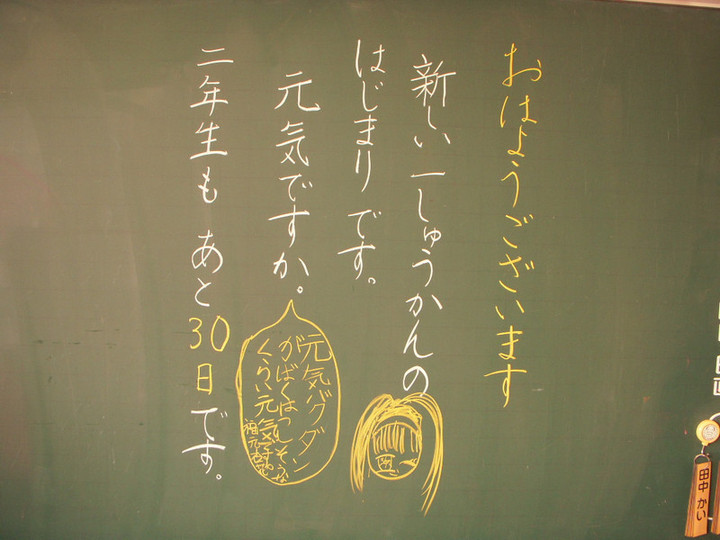 おはようございます
新しい一しゅうかんの
はじまりです。
元気ですか。
元気バクダン
がばくはつしそうな
くらい元気ですね
二年生も あと30日です。
田中 かい